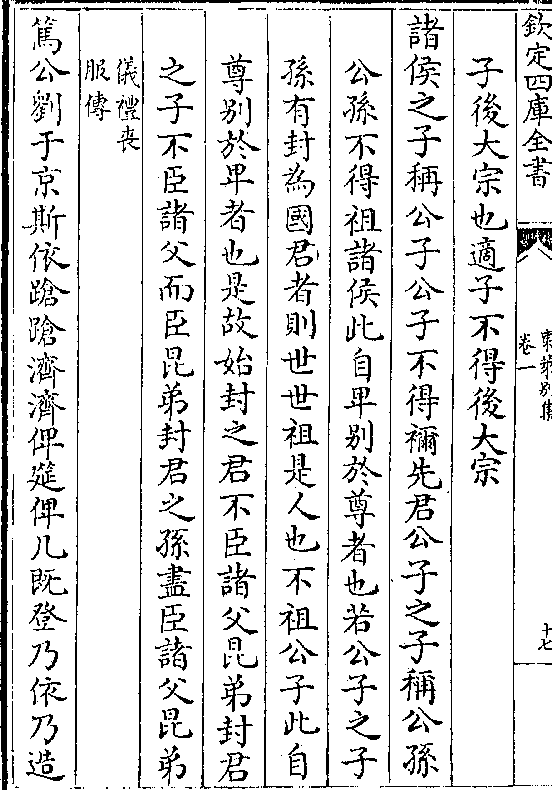 欽定四庫全書
卷一
十七
子後大宗也適子不得後大宗
諸侯之子稱公子公子不得禰先君公子之子稱公孫
公孫不得祖諸侯此自卑别於尊者也若公子之子
孫有封為國君者則世世祖是人也不祖公子此自
尊别於卑者也是故始封之君不臣諸父昆弟封君
之子不臣諸父而臣昆弟封君之孫盡臣諸父昆弟
儀禮喪
服傳
篤公劉于京斯依蹌蹌濟濟俾筵俾几既登乃依乃造